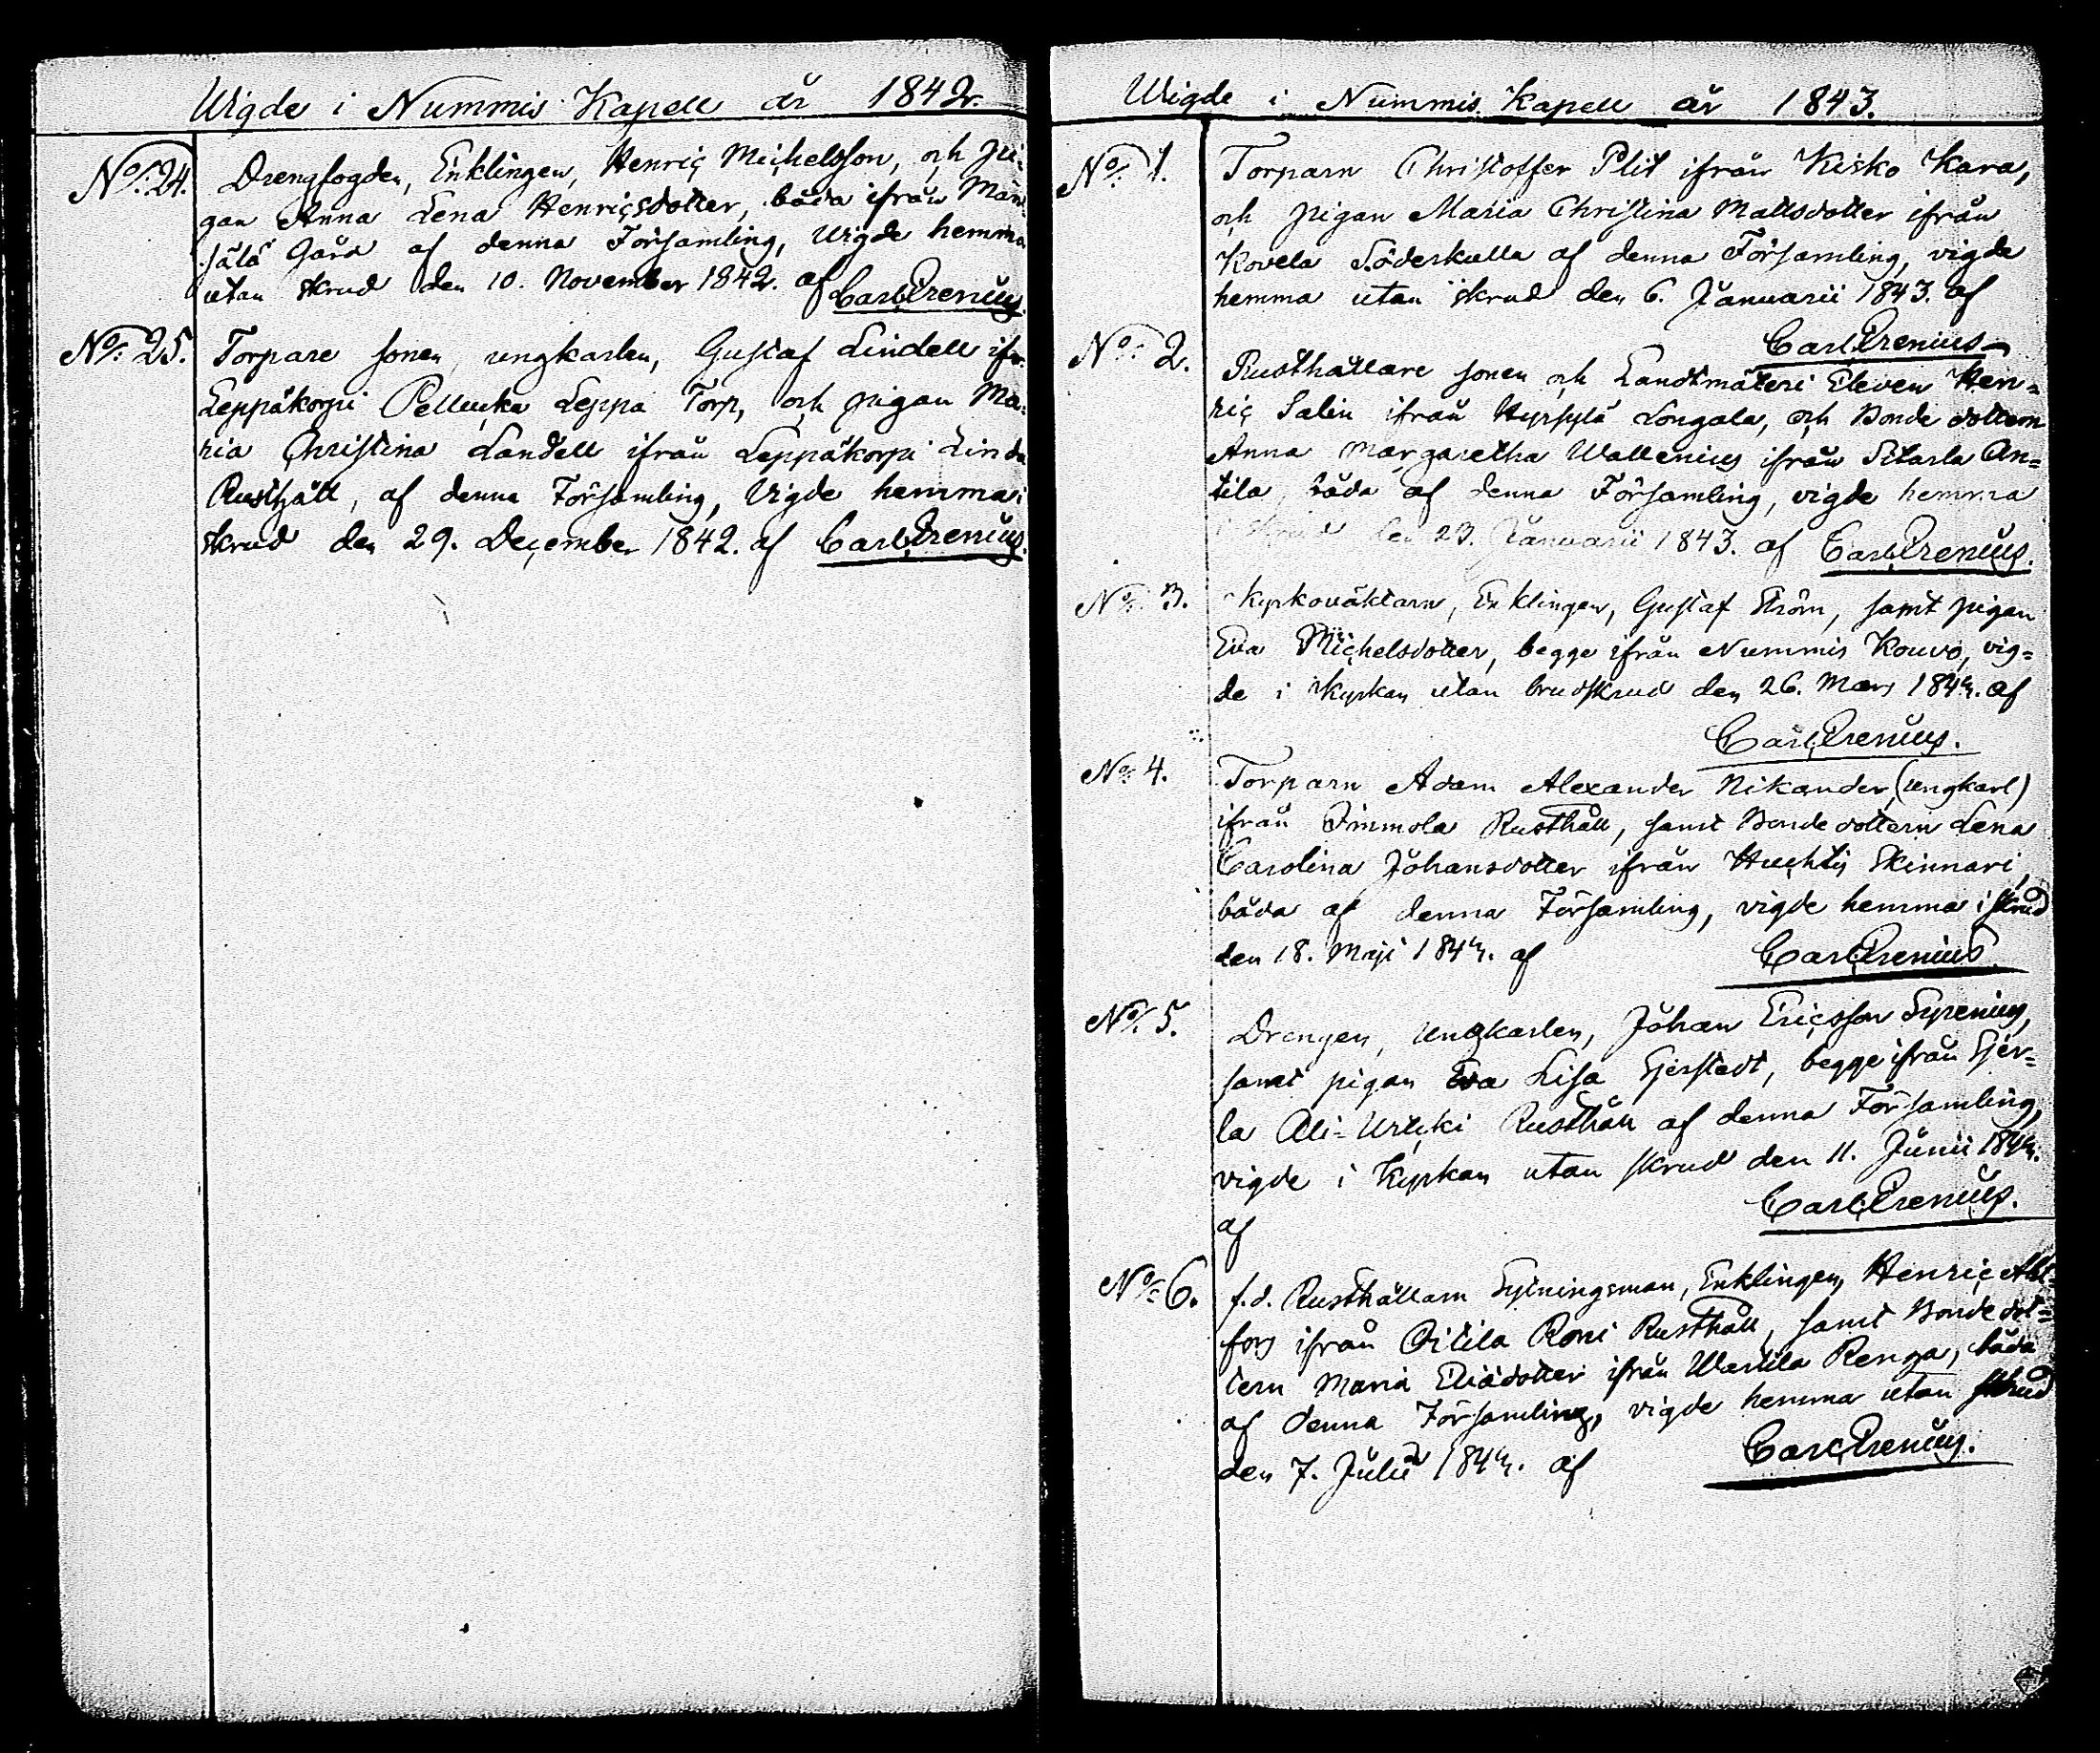 Wigde i Nummis Kapell år 1842.
No: 24. Drengfogden, Enklingen, Henric Michelsson, och pi-
gan Anna Lena Henricsdotter, båda ifrån Män-
sälä Gård af denna Församling, Vigde hemma
utan skrud den 10. November 1842. af Carl Prenius.
No: 25. Torpare sonen, ungkarlen, Gustaf Lindell ifr.
Leppäkorpi Pellucka Leppa Torp, och pigan Ma-
ria Christina Landell ifrån Leppäkorpi Linda
Rusthåll, af denna Församling, Vigde hemma i
skrud den 29. December 1842. af Carl Prenius.
Wigde i Nummis Kapell år 1843.
No: 1. Torparn Christoffer Plit ifrån Kisko Kara,
och pigan Maria Christina Mattsdotter ifrån
Kovela Söderkulla af denna Församling, vigde
hemma utan skrud den 6. Januarii 1843. af
Carl Prenius
No: 2. Rusthållare sonen och Landtmäteri Eleven Hen-
ric Salin ifrån Hyrsylä Longala, och Bonde dottern
Anna Margaretha Wallenius ifrån Sitarla An=
tila, båda af denna Församling, vigde hemma
i skrud den 23. Januarii 1843. af Carl Prenius.
No: 3. Kyrkoväktarn, Enklingen, Gustaf Ström, samt pigan
Eva Michelsdotter, begge ifrån Nummis Kouvo, vig=
de i Kyrkan utan brudskrud den 26. Mars 1843. af
Carl Prenius.
No: 4. Torparn Adam Alexander Nikander, (ungkarl)
ifrån Oinmola Rusthåll, samt Bonde dottern Lena
Carolina Johansdotter ifrån Huchti Skinnari,
båda af denna Församling, vigde hemma i skrud
den 18. Maji 1843. af Carl Prenius.
No: 5. Drengen, Ungkarlen, Johan Ericsson Syrenius,
samt pigan Eva Lisa Gjerstedt, begge ifrån Gjer=
la Ali= Rusthåll af denna Församling,
vigde i Kyrkan utan skrud den 11. Junii 1843.
af Carl Prenius.
No: 6. f.d. Rusthållarn Sytningsman, Enklingen, Henric Ahl-
fors ifrån Oitila Roni Rusthåll, samt Bonde dot=
tern Maria Eliædotter ifrån Wartila Renga, båda
af denna Församling, vigde hemma utan skrud
den 7. Julii 1843. af Carl Prenius.